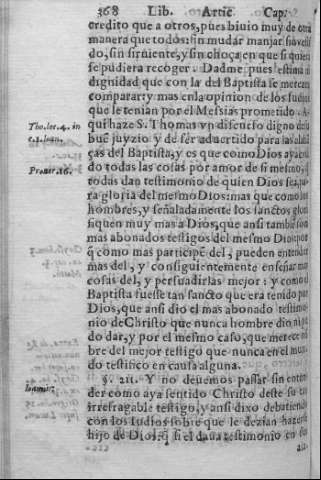 368 Lib. Artic. Cap.
credito que a otros, pues biuio muy de otra
manera que todos: sin mudar manjar, ni vesti
do, sin siruiente, y sin choça en que si quiera
se pudiera recoger. Dadme pues estima ni
dignidad que con la del Baptista se merezca
comparar: y mas en la opinion de los Iudios
que le tenian por el Messias prometido. A
Tho. lec. 4. in
qui haze S. Thomas vn discurso digno de su
c. 1. Ioan.
buẽ juyzio y de ser aduertido para las alabã
ças del Baptista, y es que como Dios aya cria
do todas las cosas por amor de si mesmo, y
Prouer. 16.
todas dan testimonio de quien Dios sea, pa
ra gloria del mesmo Dios: mas que como los
hombres, y señaladamente los sanctos glori
fiquen muy mas a Dios, que ansi tambien son
mas abonados testigos del mesmo Dios: por
q̃ como mas participẽ del, pueden entender
mas del, y consiguientemente enseñar mas
cosas del, y persuadirlas mejor: y como el
Baptista fuesse tan sancto que era tenido por
Dios, que ansi dio el mas abonado testimo
nio de Christo que nunca hombre dio ni pu
do dar, y por el mesmo caso, que merece nõ
bre del mejor testigo que nunca en el mun
do testifico en causa alguna.
§. 211. Y no deuemos passar sin enten
der como aya sentido Christo deste su tã
irrefragable testigo, y ansi dixo debatiendo
con los Iudios sobre que le dezian hazerse
hijo de Dios: q̃ si el daua testimonio en su